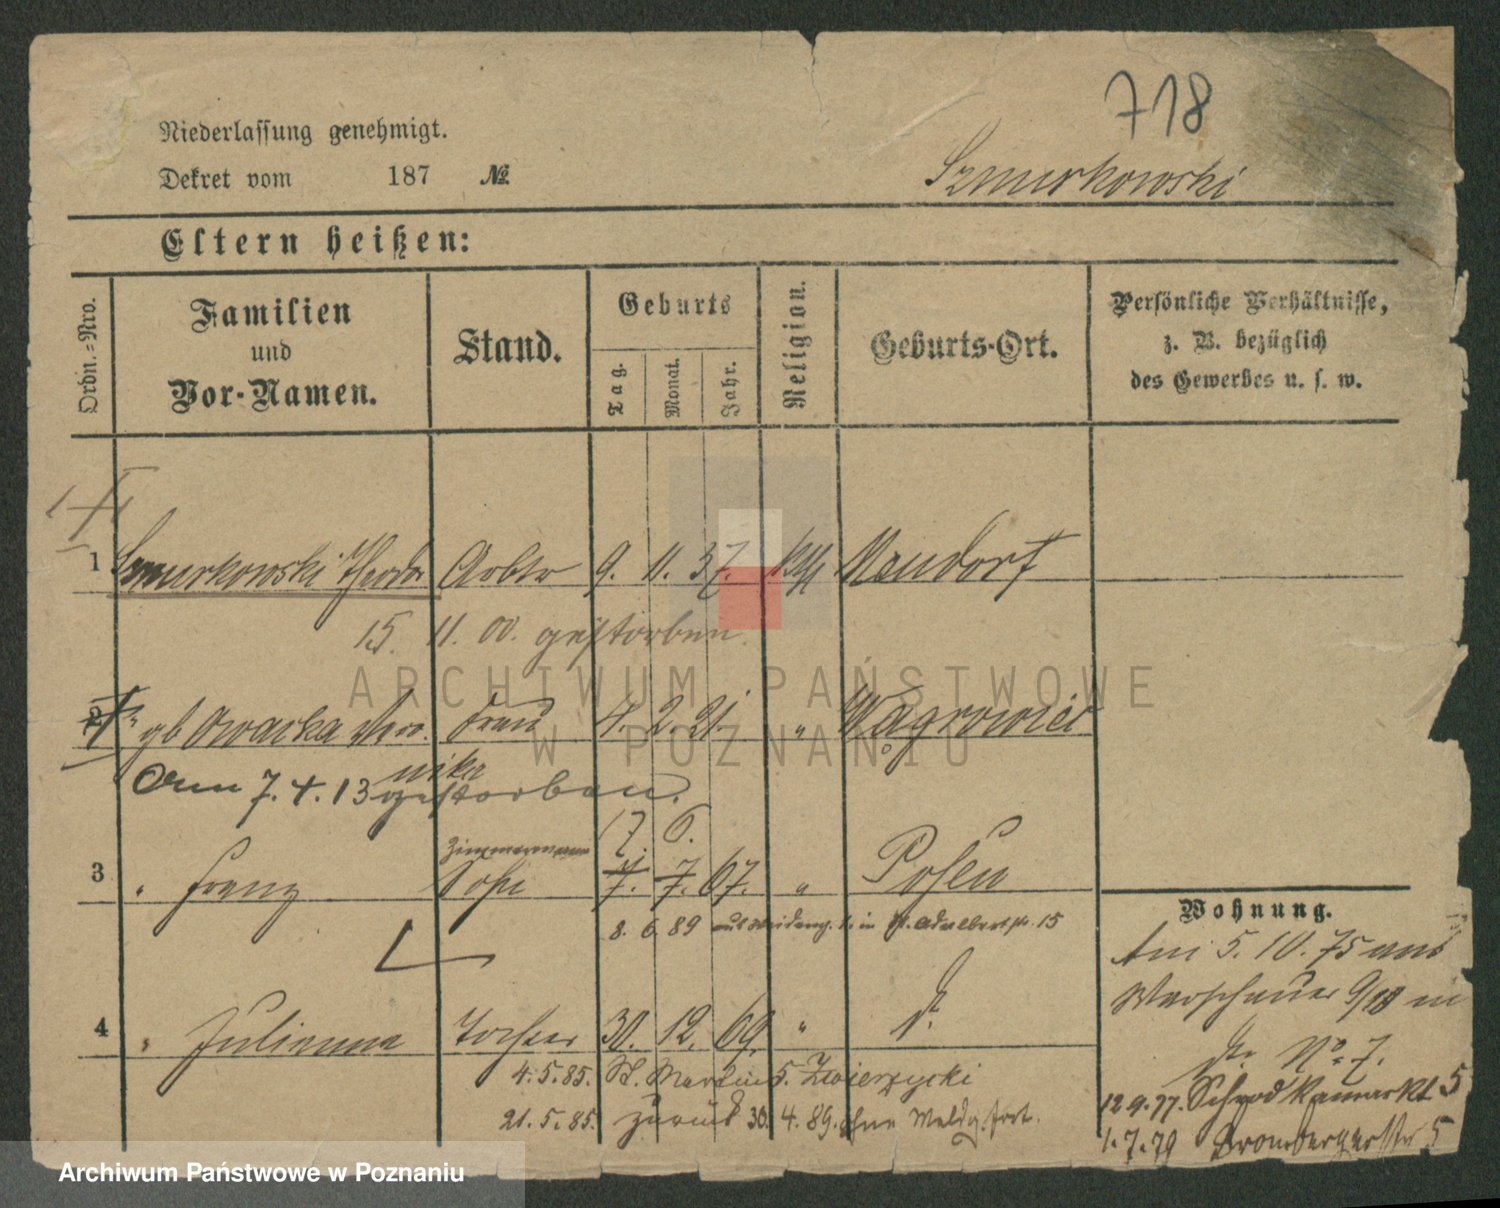 718
Niederlassung genehmigt.
Dekret vom 187 №
Szmurkowski
Eltern heißen:
Ordn.-Nro.
Familien und Vor-Namen.
Stand.
Geburts
Tag.
Monat.
Jahr.
Religion.
Geburts-Ort.
Persönliche Verhältnisse,
z. B. bezüglich
des Gewerbes u. s. w.
1 Szmurkowski Theodor Arbtr 9. 11. 37. kth Neudorf
15. 11. 00. gestorben.
2 gb Owacka Vero Frau 4. 2. 21. " Wągrowiec
nika
Am 7.4.13 gestorben.
Zimmermann 17. 6.
3 " Franz Sohn 7. 7. 67. " Posen
8. 6 89 in St. Adalbertstr. 15
Wohnung.
Am 5. 10. 75 aus
Warschauer 9/10 in
4 " Julianna Tochter 30. 12. 69. " do.
do. No 7.
4.5.85. St. Martin 5. Zwierzycki
12.9.77. Schrodkamarkt 5
21.5.85. zurück 30. 4. 89. ohne Meldg. fort.
1.7.79 Brombergerstr 5
ARCHIWUM PAŃSTWOWE
W POZNANIU
Archiwum Państwowe w Poznaniu